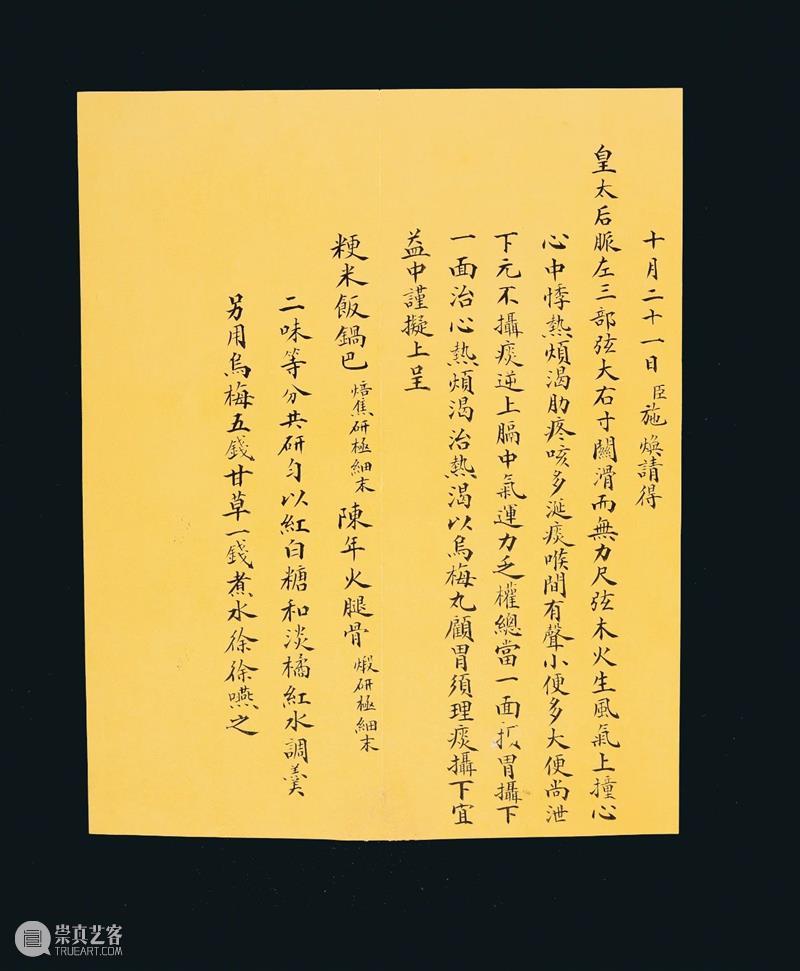 十月二十一日臣施煥請得
皇太后脈左三部弦大右寸關滑而無力尺弦木火生風氣上撞心
心中悸熱煩渴肋疼咳多涎痰喉間有聲小便多大便尚泄
下元不攝痰逆上膈中氣運力乏權總當一面扶胃攝下
一面治心熱煩渴治熱渴以烏梅丸顧胃須理痰攝下宜
益中謹擬上呈
粳米飯鍋巴焙焦研極細末 陳年火腿骨煅研極細末
二味等分共研勻以紅白糖和淡橘紅水調羹
另用烏梅五錢甘草一錢煮水徐徐嚥之
崇真艺客
TRUEART.COM